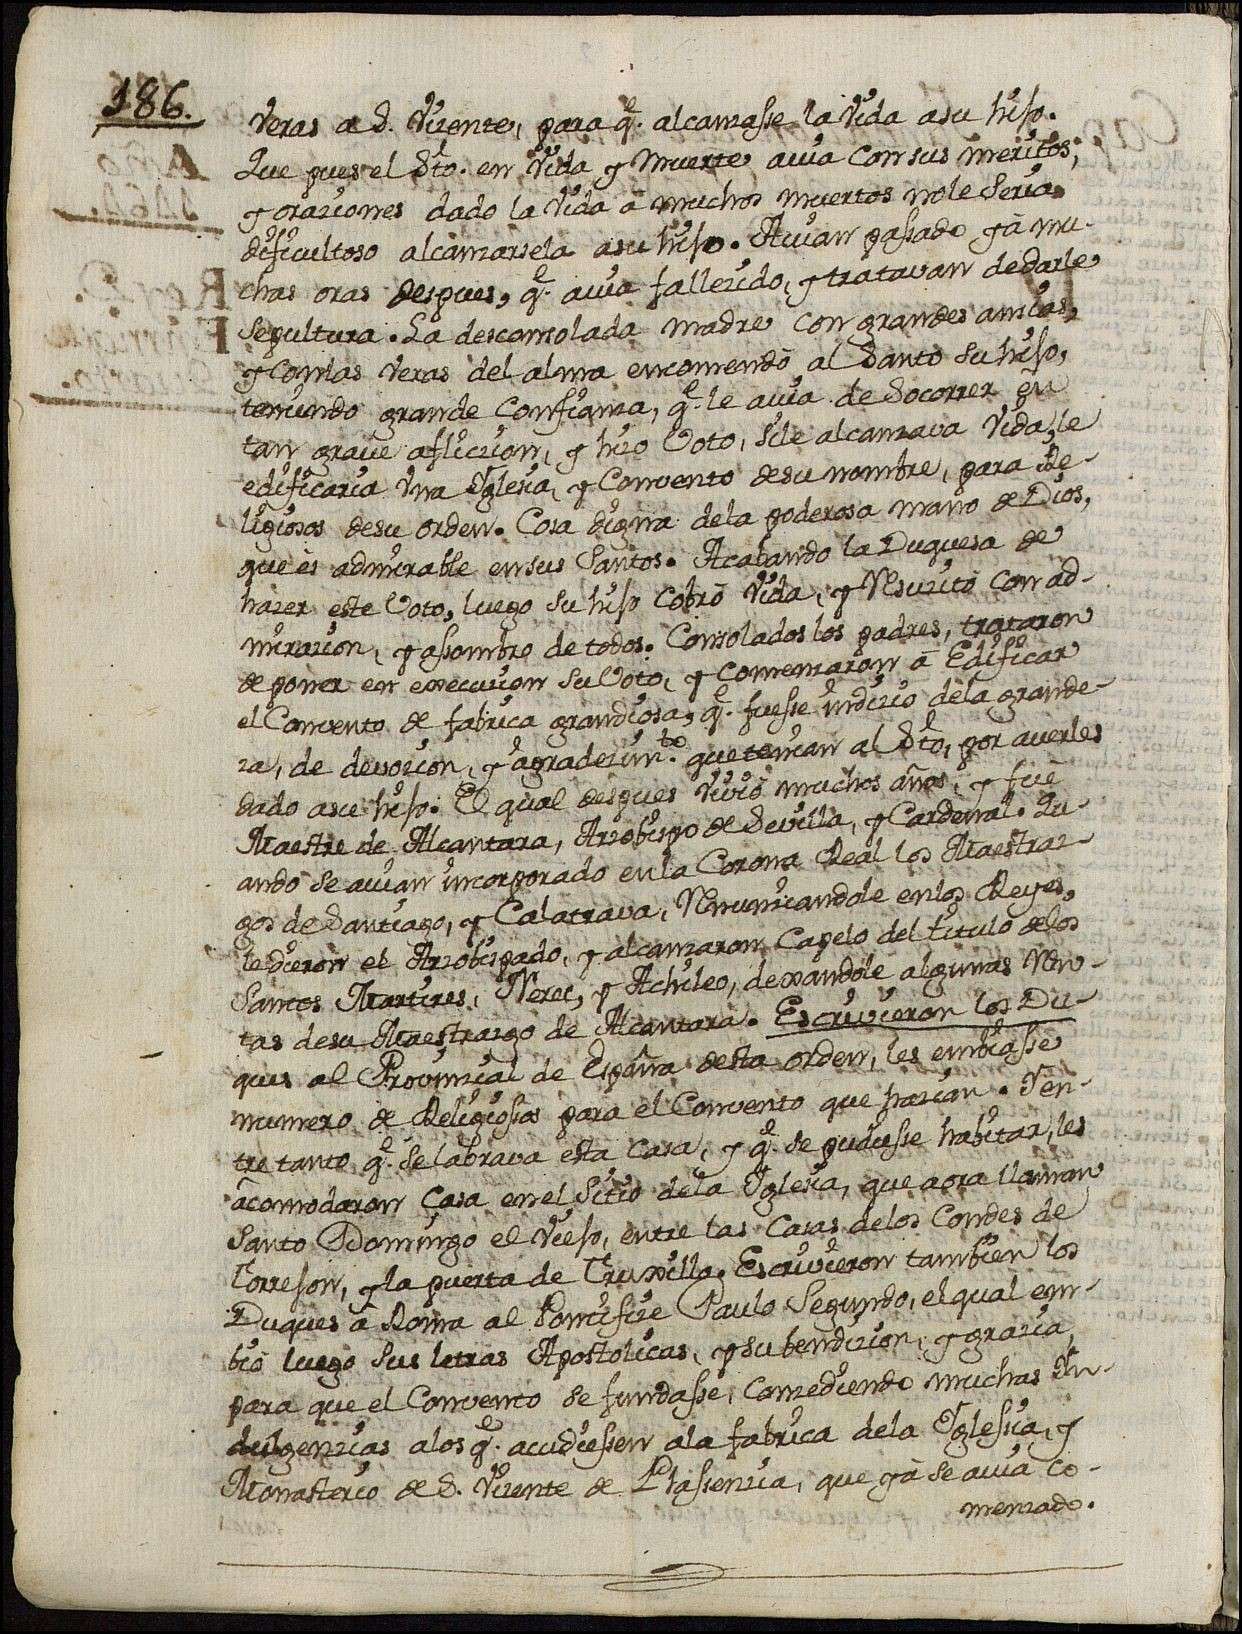 186.
veras a S. Vizente, para q̃. alcanzasse la Vida asu hijo.
Que pues el Sto. en Vida y Muerte, auia con sus meritos,
y oraziones dado la Vida â muchos muertos nole seria
dificultoso alcanzarsela asu hijo. Auian passado yâ mu-
chas oras despues, q̃. auia fallezido, y tratavan dedarle
sepultura. La desconsolada madre con grandes ansias,
y Conlas veras del alma encomendó al Santo su hijo,
teniendo grande Confianza, q̃. le auia de Socorrer en
tan graue afliczion, y hizo Voto, sile alcanzava Vida, le
edificaria Vna Iglesia, y Convento desu nombre, para Re-
ligiosos desu orden. Cosa digna dela poderosa mano de Dios,
que ès admirable ensus Santos. Acabando la Duquesa de
hazer este Voto, luego su hijo Cobrò Vida, y Resuzitò con ad-
mirazion, y assombro de todos. Consolados los padres, trataron
de poner en execuzion su Voto, y Comenzaron â Edificar
el Convento de fabrica grandiosa, q̃. fuesse indizio dela grande-
za, de devozion, y agradezimto. que tenian al Sto, por averles
dado asu hijo. El qual despues viviò muchos años, y fuè
Maestre de Alcantara, Arzobispo de Sevilla, y Cardenal. Qu-
ando se auian incorporado en la Corona Real los Maestraz-
gos de Santiago, y Calatrava, Renunziandole en los Reyes,
le dieron el Arzobispado, y alcanzaron Capelo del titulo delos
Santos Martires, Nereo, y Achileo, dexandole algunas Ren-
tas desu Maestrazgo de Alcantara. Escrivieron los Du-
ques al Provinzial de España desta orden, les embiasse
numero de Religiosos para el Convento que hazian. Yen-
tre tanto q̃. se labrava esta Casa, y q̃. se pudiesse habitar, les
acomodaron Casa en el Sitio dela Iglesia, que aora llaman
Santo Domingo el Viejo, entre las Casas delos Condes de
Torrejon, y la puerta de Truxillo. Escrivieron tambien los
Duques â Roma al Pontifize Paulo Segundo, el qual em-
biò luego sus letras Apostolicas, y su bendizion, y grazia,
para que el Convento se fundasse, Conzediendo muchas In-
dulgenzias alos q̃. acudiessen ala fabrica dela Iglessia, y
Monasterio de S. Vizente de Plassenzia, que yâ se auia Co-
menzado.